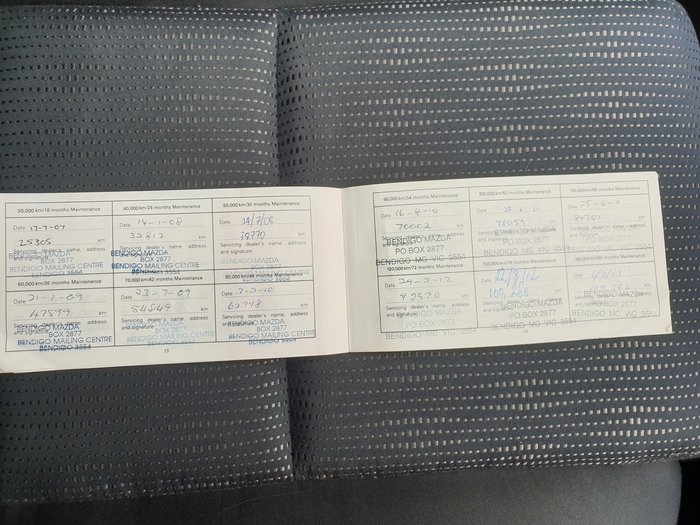 30,000 km/18 months Maintenance
Date 17-7-07
25305 km
Servicing dealer's name, address
and signature
BENDIGO MAZDA
BOX 2877
BENDIGO MAILING CENTRE
40,000 km/24 months Maintenance
Date 14-1-08
32812 km
Servicing dealer's name, address
and signature
BENDIGO MAZDA
BOX 2877
BENDIGO MAILING CENTRE
BENDIGO 3552
50,000 km/30 months Maintenance
Date 21/7/08
38770 km
Servicing dealer's name, address
and signature
BENDIGO MAZDA
BOX 2877
BENDIGO MAILING CENTRE
60,000 km/36 months Maintenance
Date 21-1-09
47599 km
Servicing dealer's name, address
and signature
BENDIGO MAZDA
BOX 2877
BENDIGO MAILING CENTRE
BENDIGO 3554
70,000 km/42 months Maintenance
Date 23-7-09
54849 km
Servicing dealer's name, address
and signature
BENDIGO MAZDA
BOX 2877
BENDIGO MAILING CENTRE
BENDIGO 3554
Date 3-2-10
km
Servicing dealer's name, address
and signature
BENDIGO MAZDA
BOX 2877
BENDIGO MAILING CENTRE
BENDIGO 3554
15
90,000 km/54 months Maintenance
Date 16-8-10
70002 km
Servicing dealer's name, address
and signature
BENDIGO MAZDA
PO BOX 2877
BENDIGO MC VIC 3554
100,000 km/60 months Maintenance
Date
78059 km
Servicing dealer's name, address
and signature
BENDIGO MAZDA
PO BOX 2877
BENDIGO MC VIC 3554
Date 25-8-11
km
BENDIGO MAZDA
PO BOX 2877
BENDIGO MC VIC 3554
120,000 km/72 months Maintenance
Date 24-2-12
92570 km
Servicing dealer's name, address
and signature
BENDIGO MAZDA
PO BOX 2877
BENDIGO MC VIC 3554
Date
km
Servicing dealer's name, address
and signature
BENDIGO MAZDA
PO BOX 2877
BENDIGO MC VIC 3554
Date
km
Servicing dealer's name, address
and signature
BENDIGO MAZDA
PO BOX 2877
BENDIGO MC VIC 3554